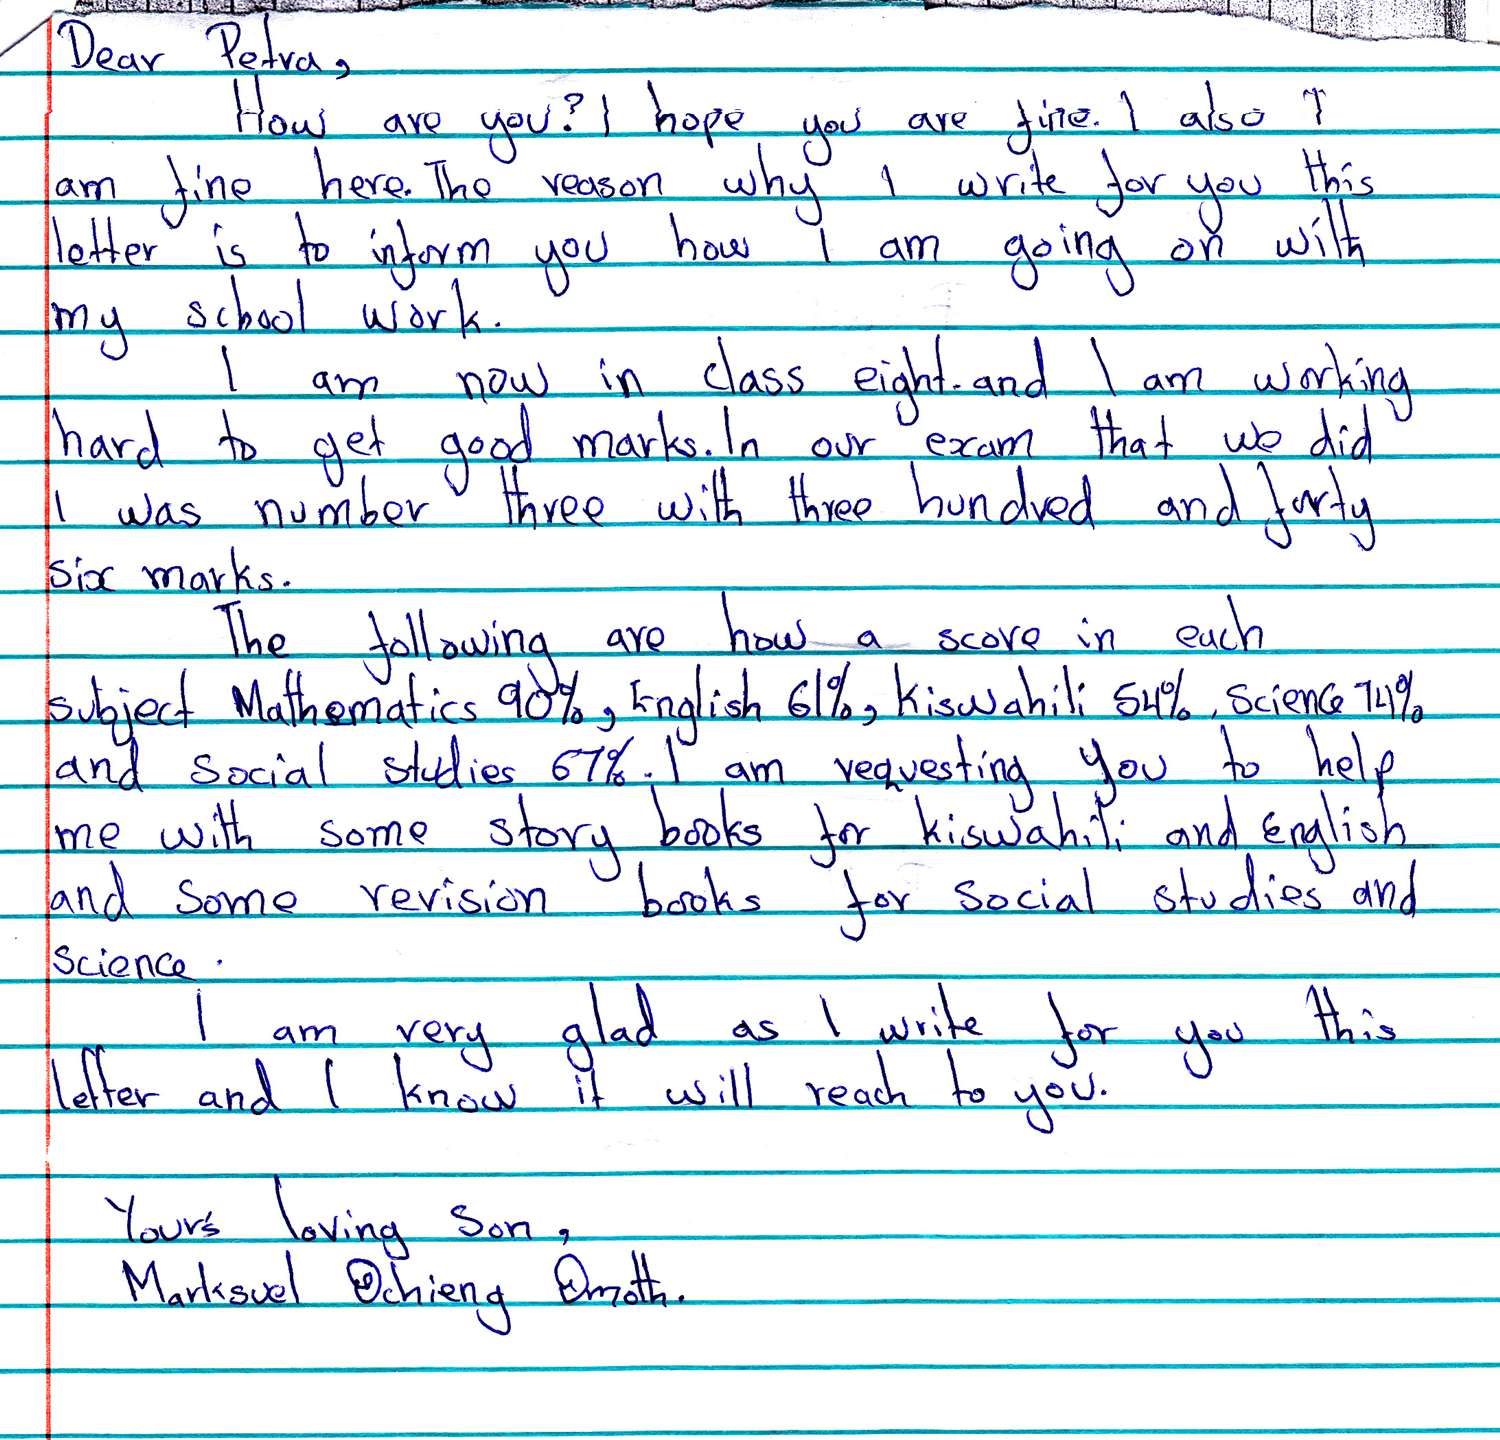 Dear Petra,
How are you? I hope you are fine. I also I
am fine here. The reason why I write for you this
letter is to inform you how I am going on with
my school work.
I am now in class eight. and I am working
hard to get good marks. In our exam that we did
I was number three with three hundred and forty
six marks.
The following are how a score in each
subject Mathematics 90%, English 61%, Kiswahili 54%, Science 74%
and social studies 67%. I am requesting you to help
me with some story books for Kiswahili and English
and some revision books for social studies and
science.
I am very glad as I write for you this
letter and I know it will reach to you.
Your's loving Son,
Marksuel Ochieng Omoth.